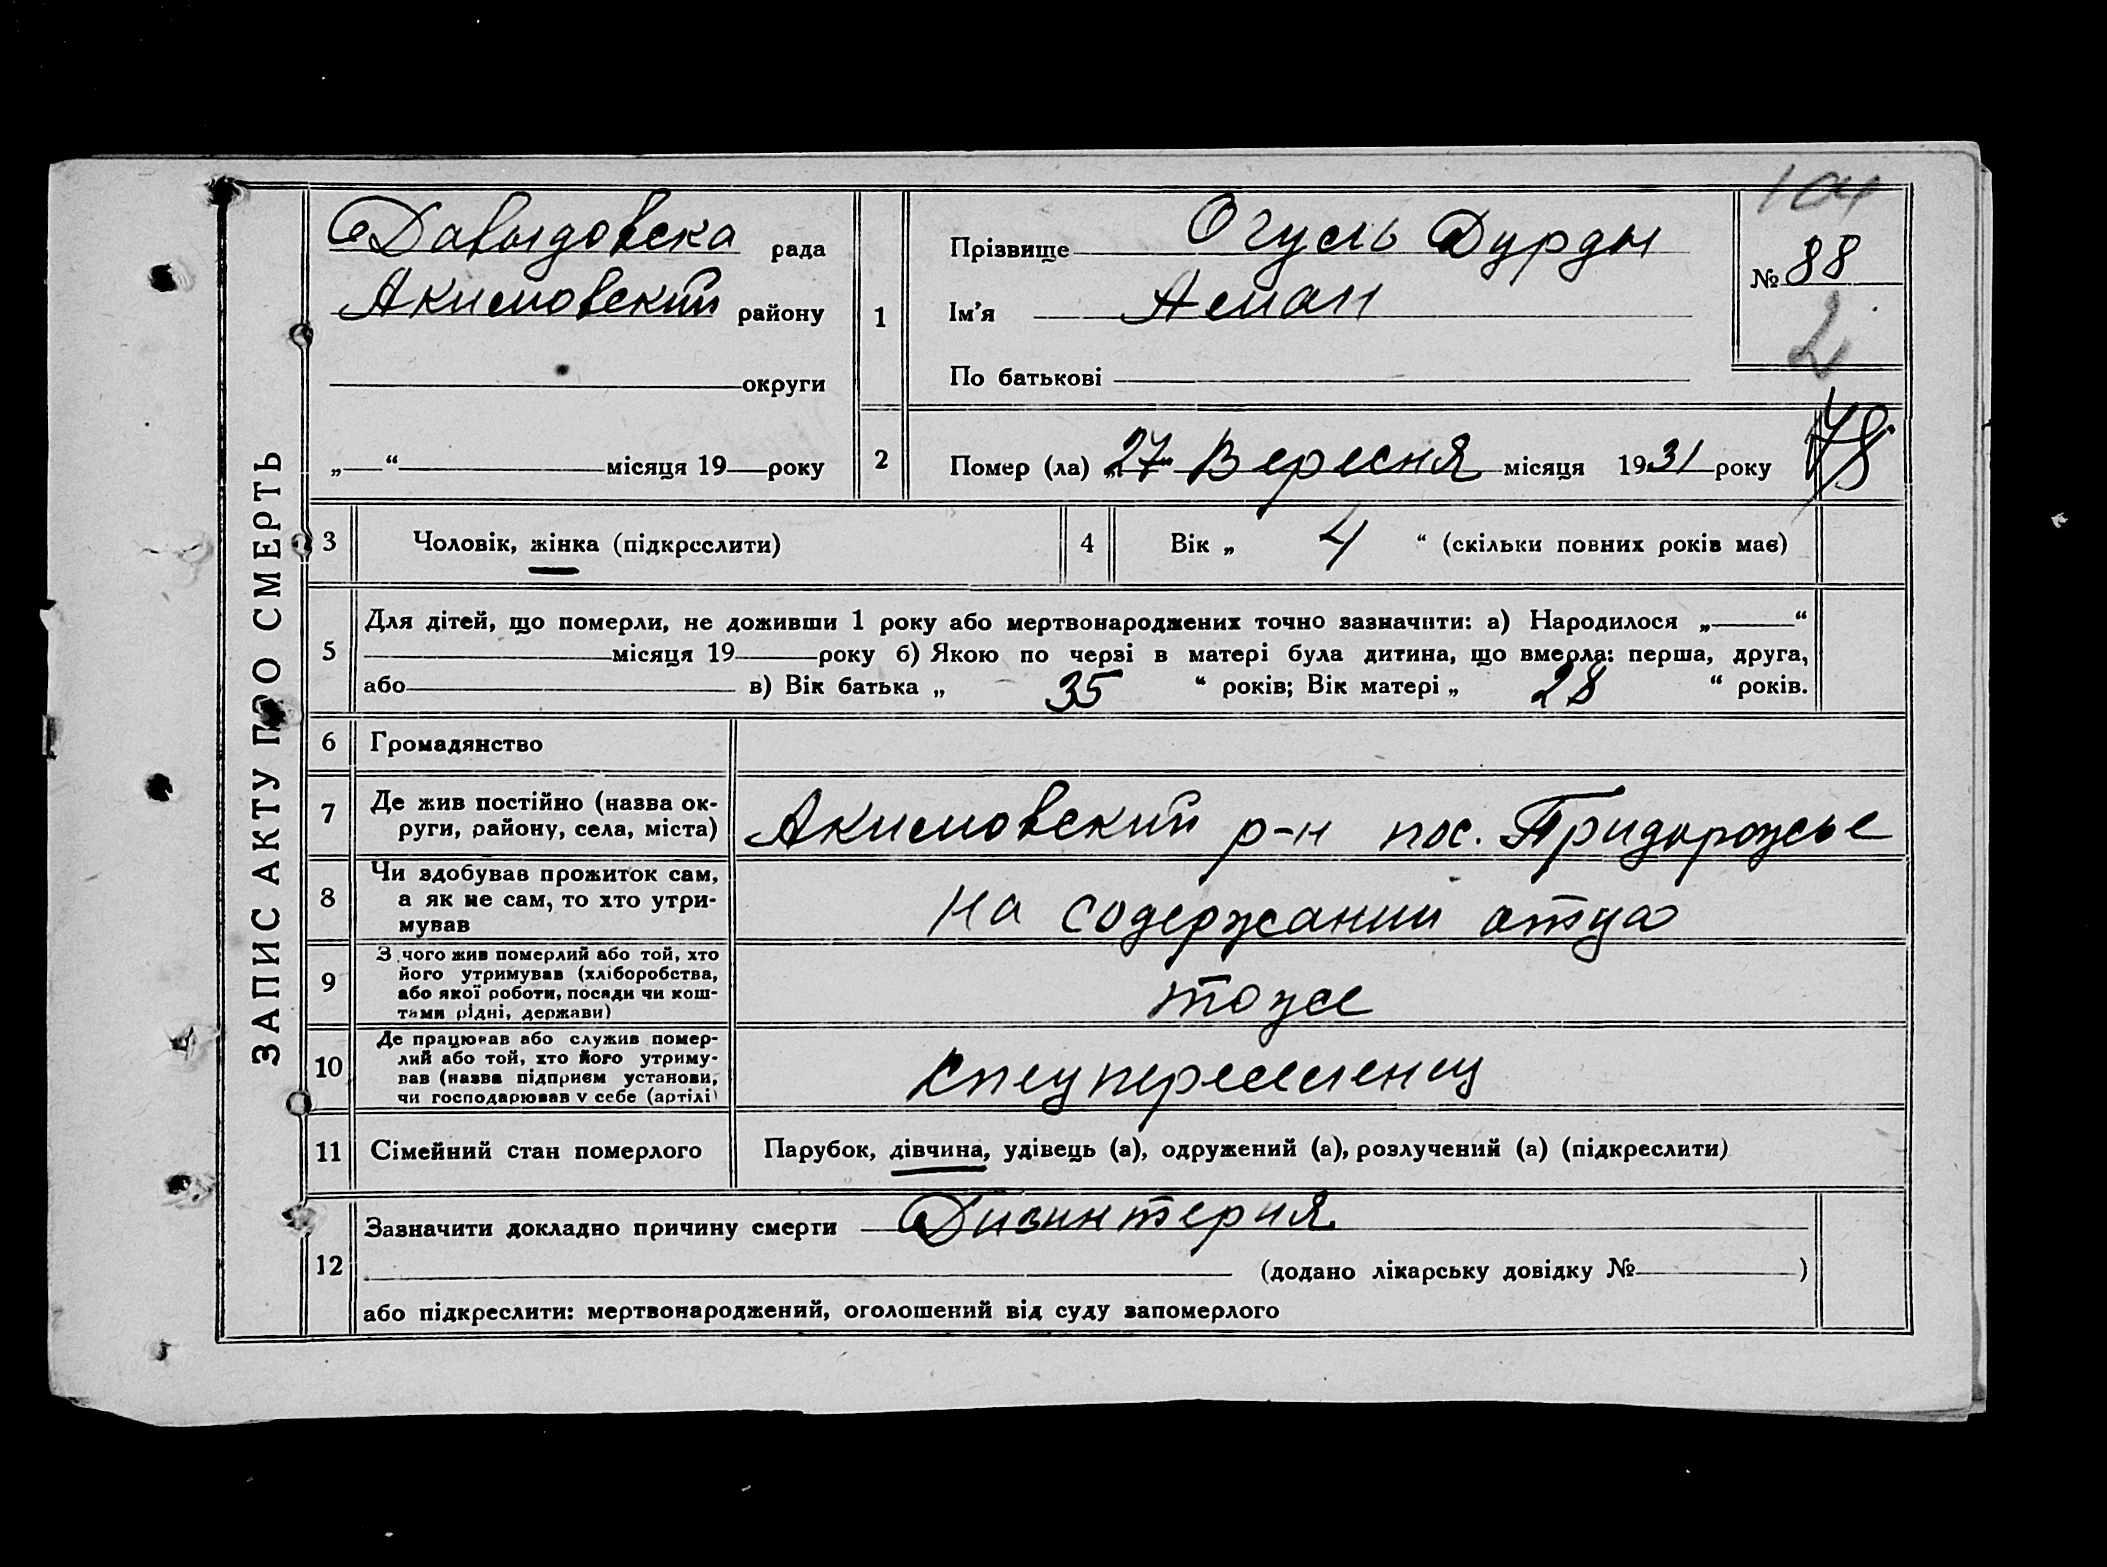 ЗАПИС АКТУ ПРО СМЕРТЬ
Давыдовска рада
Акимовский району
округи
„ “ місяця 19 року
1
Прізвище Огуль Дурды
Ім'я Аман
По батькові
104
№ 88
2
2
Помер (ла) „27“ Вересня місяця 1931 року
78
3
Чоловік, жінка (підкреслити)
4
Вік „ 4 “ (скільки повних років має)
5
Для дітей, що померли, не доживши 1 року або мертвонароджених точно зазначити: а) Народилося „ “
місяця 19 року б) Якою по черзі в матері була дитина, що вмерла: перша, друга,
або в) Вік батька „ 35 “ років; Вік матері „ 28 “ років.
6
Громадянство
7
Де жив постійно (назва ок-
руги, району, села, міста)
Акимовский р-н пос. Придорожье
8
Чи здобував прожиток сам,
а як не сам, то хто утри-
мував
на содержании отца
9
З чого жив померлий або той, хто
його утримував (хліборобства,
або якої роботи, посади чи кош-
тами рідні, держави)
тоже
10
Де працював або служив помер-
лий або той, хто його утриму-
вав (назва підприєм установи,
чи господарював у себе (артілі)
спецпереселенец
11
Сімейний стан померлого
Парубок, дівчина, удівець (а), одружений (а), розлучений (а) (підкреслити)
12
Зазначити докладно причину смерти Дизинтерия
(додано лікарську довідку № )
або підкреслити: мертвонароджений, оголошений від суду запомерлого